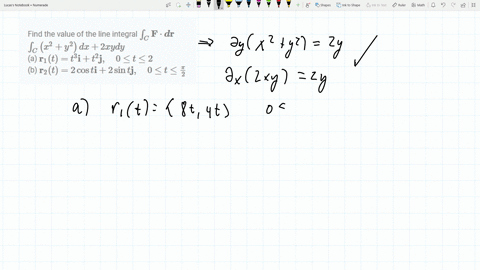 Lucas's Notebook » Homemade
Find the value of the line integral ∫_C F · dr
∫_C (x² + y²) dx + 2xydy
(a) r₁(t) = t³i + t²j, 0 ≤ t ≤ 2
(b) r₂(t) = 2 cos ti + 2 sin tj, 0 ≤ t ≤ π/2
⇒ ∂y(x²+y²) = 2y ✓
∂x(2xy) = 2y
a) r₁(t) = ⟨8t, 4t⟩ 0 ≤